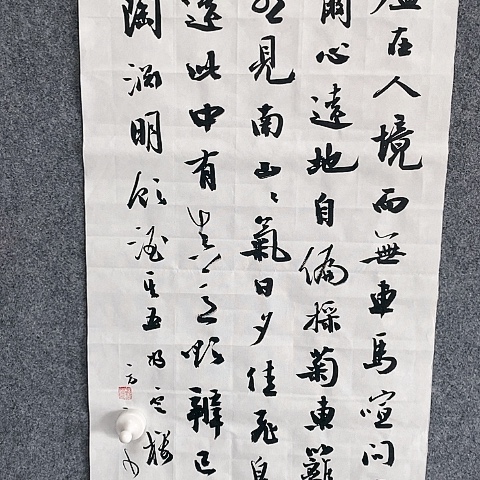 廬在人境而無車馬喧問
爾心遠地自偏採菊東籬
見南山山氣日夕佳飛鳥
還此中有真意欲辨已
陶淵明飲酒其五